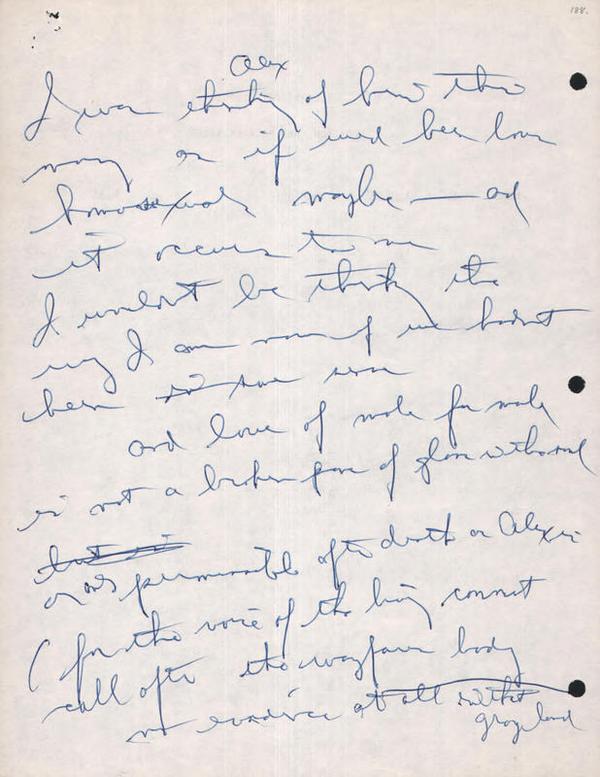 188.
Alex
I was thinking of how this
way or if we'd been love
homosexuals maybe — and
it occurs to me
I wouldn't be thinking the
way I am now if we hadn't
been in some
and love of male for male
is not a broken pane of glass without
but is
or only permissible after death as Alex is
(for the voice of the living cannot
call after the wayfarer body
no evidence at all in that
gray land